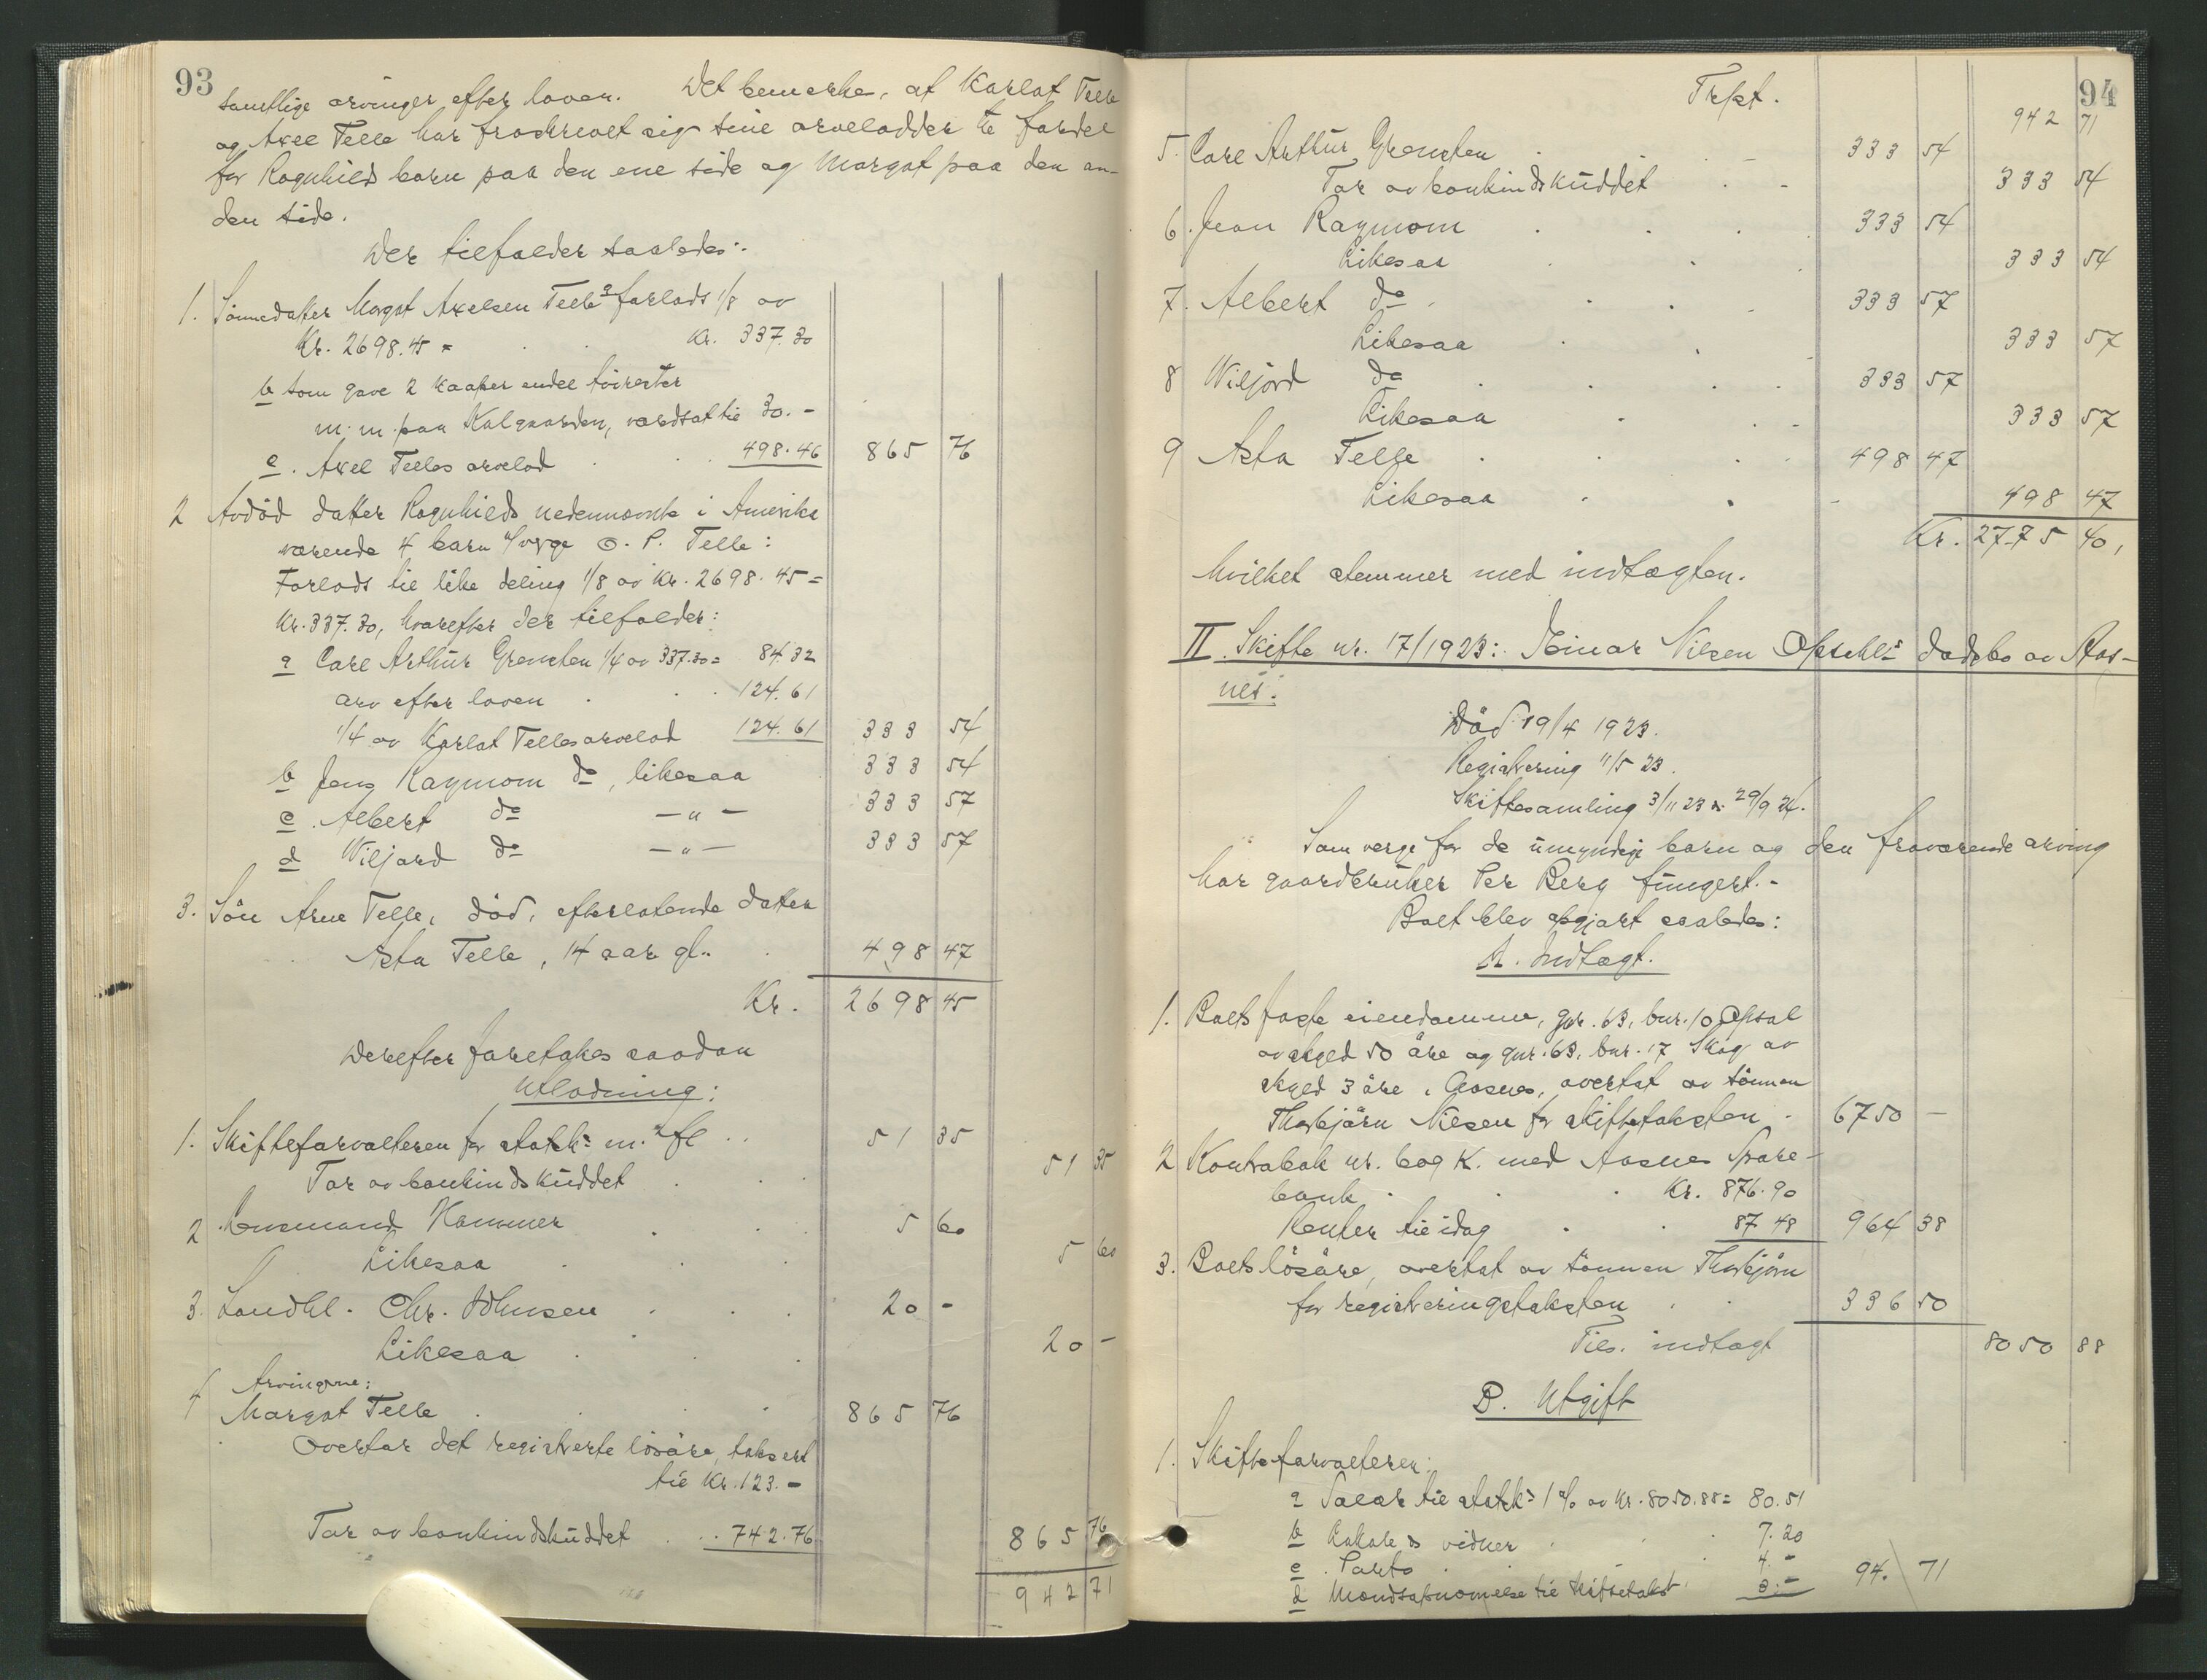 93
samtlige arvinger efter loven. Det bemerkes, at Karlot Telle
og Axel Telle har fraskrevet sig sine arvelodder til fordel
for Ragnhilds barn paa den ene side og Margot paa den an-
den side.
Der tilfalder saaledes:
1. Sönnedatter Margot Axelsen Telle a forlods 1/8 av
Kr. 2698.45 = Kr. 337.30
b som gave 2 kaaper endel töirester
m. m. paa Kalgaarden, verdsat til 30.-
c. Axel Telles arvelod 498.46 865 76
2 Avdöd datter Ragnhilds nedennevnte i Amerika
værende 4 barn v/verge O. P. Telle:
Forlods til like deling 1/8 av Kr. 2698.45 =
Kr. 337.30, hvorefter der tilfalder:
a Carl Arthur Grensten 1/4 av 337.30 = 84.32
arv efter loven 124.61
1/4 av Karlot Telles arvelod 124.61 333 54
b Jens Raymom do, likesaa 333 54
c. Albert do — " — 333 57
d Wiljard do — " — 333 57
3. Sön Arne Telle, död, efterlatende datter
Asta Telle, 14 aar gl. 498 47
Kr. 2698 45
Derefter foretokes saadan
Utlodning:
1. Skifteforvalteren for statsk: m. fl 51 35
Tar av bankindskuddet 51 35
2 Lensmand Hammer 5 60
Likesaa 5 60
3. Landhl. Chr. Johnsen 20 -
Likesaa 20 -
4 Arvingerne:
Margot Telle 865 76
Overtar det registrerte lösöre, taksert
til Kr. 123.-
Tar av bankindskuddet 742.76 865 76
942 71
94
Trpt. 942 71
5. Carl Arthur Grensten 333 54
Tar av bankindskuddet 333 54
6. Jean Raymom 333 54
Likesaa 333 54
7. Albert do 333 57
Likesaa 333 57
8 Wiljord do 333 57
Likesaa 333 57
9 Asta Telle 498 47
Likesaa 498 47
Kr. 2775 40,
hvilket stemmer med indtægten.
II. Skifte nr. 17/1923: Einar Nilsen Opsahls dödsbo av Aas-
nes.
Död 19/4 1923.
Registrering 11/5 23.
Skiftesamling 3/11 23 & 29/9 24.
Som verge for de umyndige barn og den fraværende arving
har gaardbruker Per Berg fungert.-
Boet blev opgjort saaledes:
A. Indtægt.
1. Boets faste eiendomme, gnr. 63, bnr. 10 Opsal
av skyld 50 öre og gnr. 63, bnr. 17 Skog av
skyld 3 öre, i Aasnes, overtat av sönnen
Thorbjörn Nilsen for skiftetaksten 6750 —
2 Kontrabok nr. bog K. med Aasnes Spare-
bank Kr. 876.90
Renter til idag 87 48 964 38
3. Boets lösöre, overtat av sönnen Thorbjörn
for registreringstaksten 336 50
Tils. indtægt 8050 88
B. Utgift
1. Skifteforvalteren:
a Salær til statsk: 1 % av Kr. 8050.88 = 80.51
b Kokals vidner 7.20
c. Porto 4.-
d Mandsopnævnelse til skiftetakst 3.- 94. 71